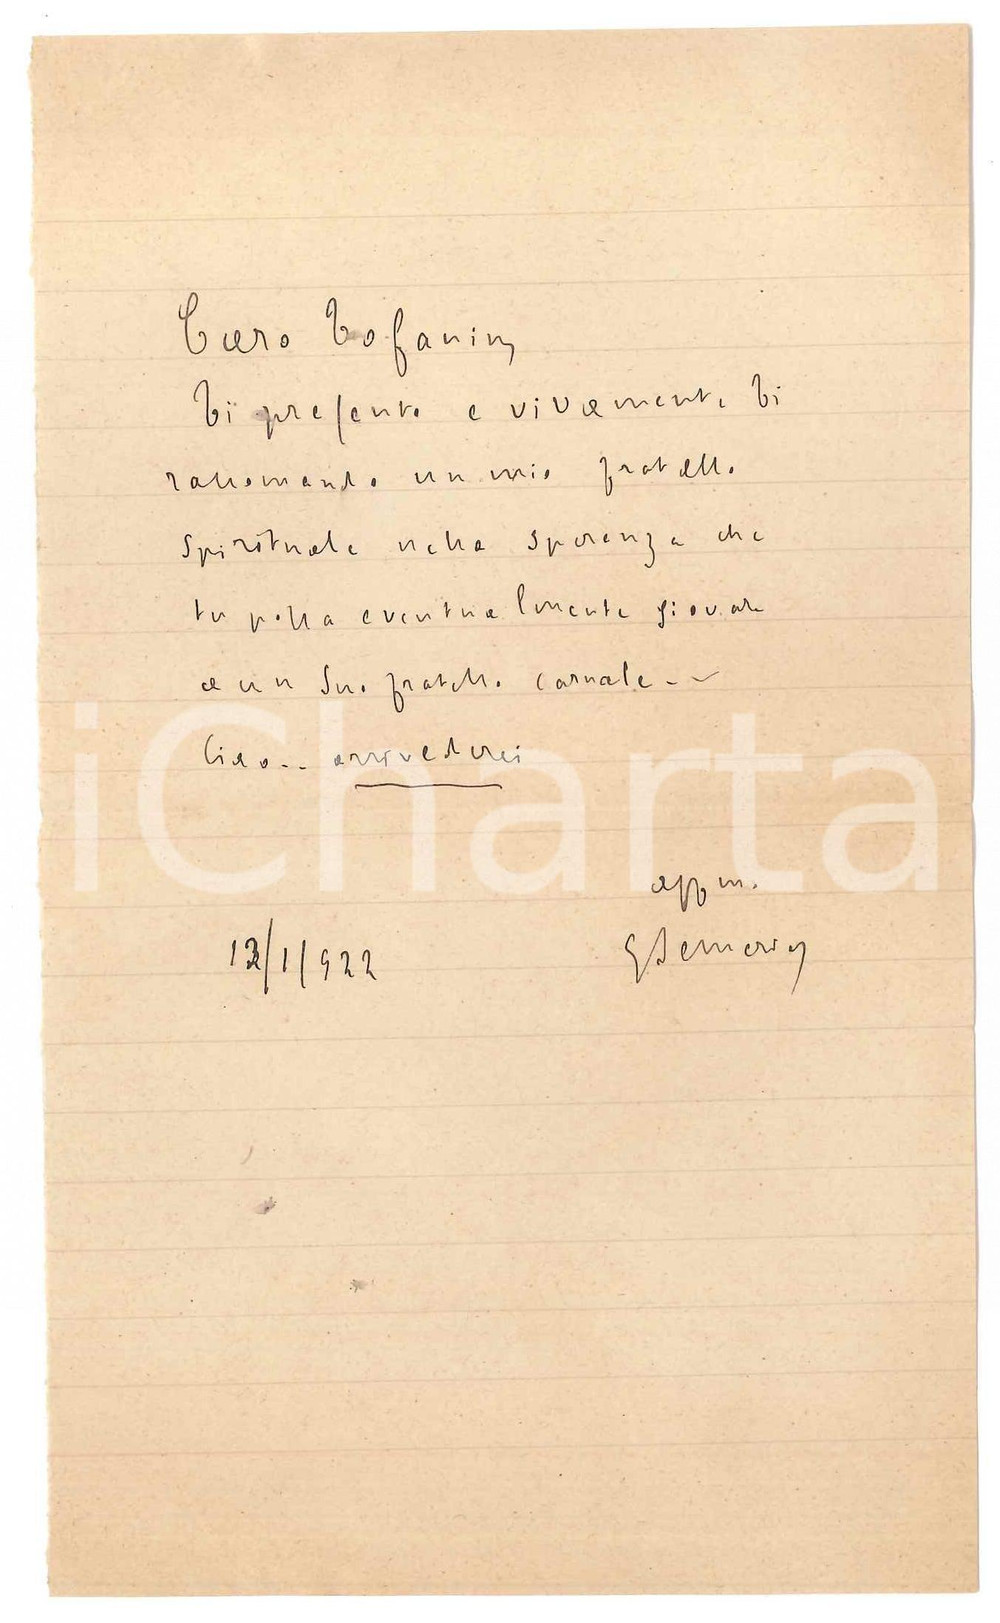 Caro Tofanin,
Ti presento e vivamente ti
raccomando un mio fratello
spirituale nella speranza che
tu possa eventualmente giovare
a un suo fratello carnale --
Ciao -- arrivederci
affm.
12/1/922
iCharta